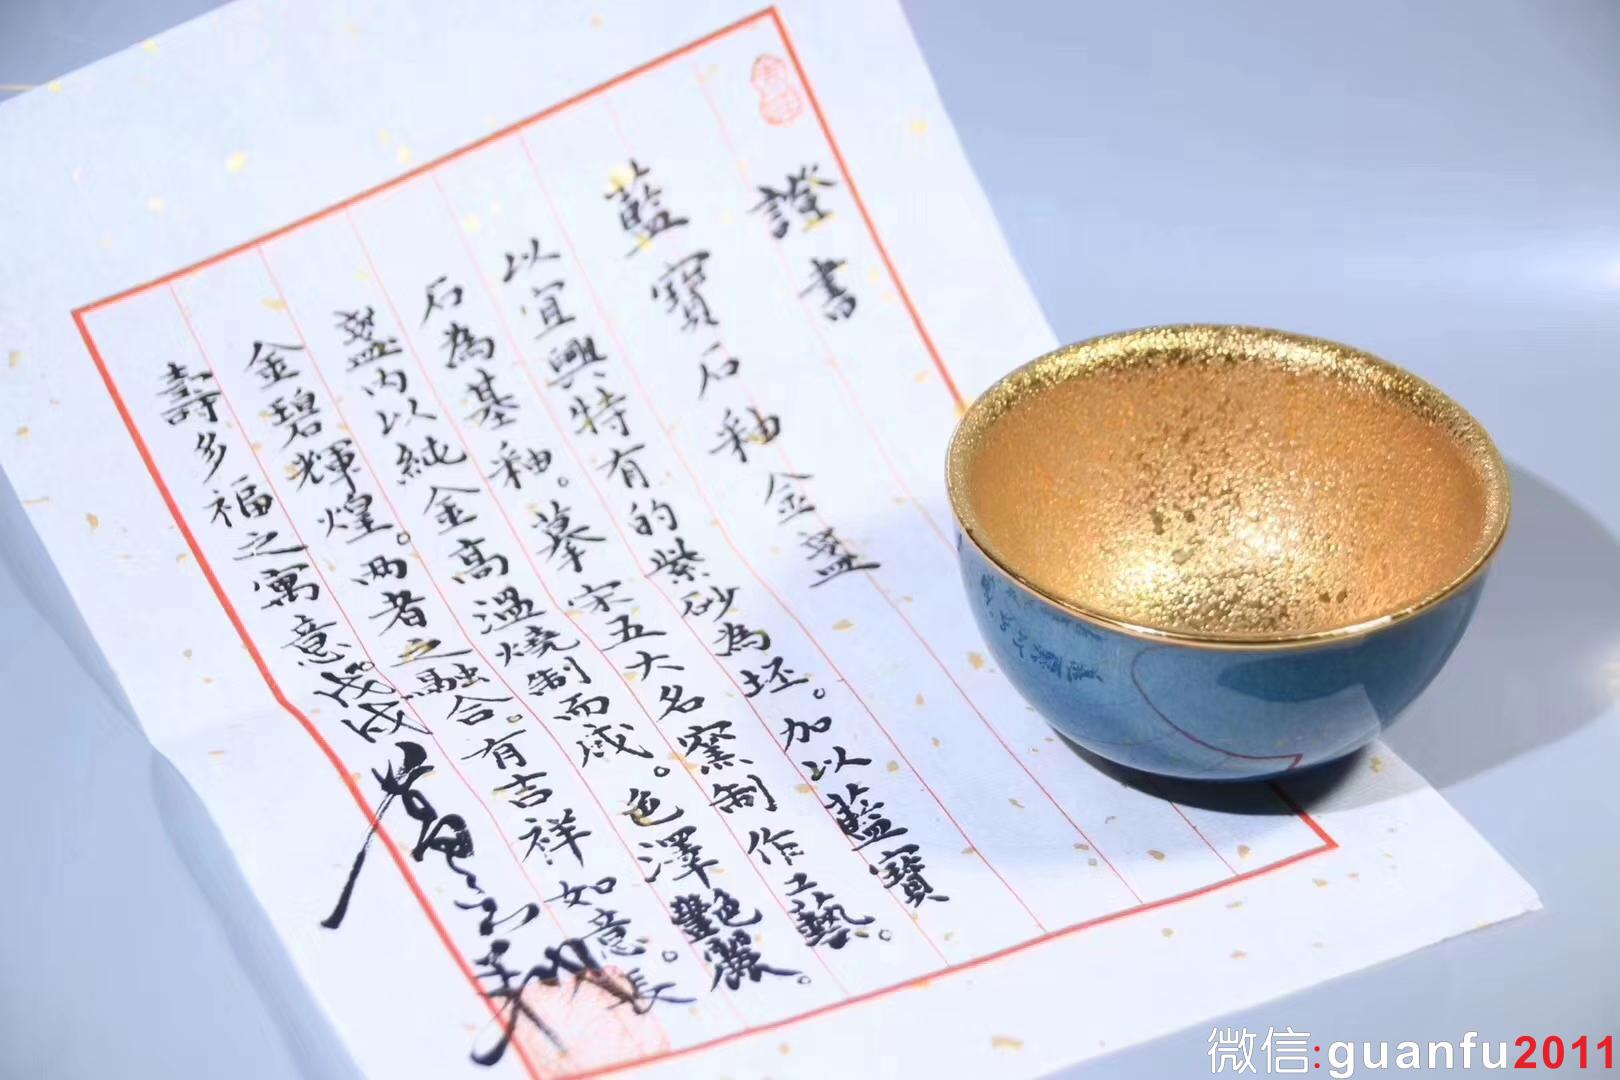 證書
藍寶石釉金盞
以宜興特有的紫砂為坯。加以藍寶
石為基釉。摹宋五大名窯制作工藝。
盞内以純金高溫燒制而成。色澤艷麗。
金碧輝煌。两者之融合。有吉祥如意。長
壽多福之寓意。戊戌
微信:guanfu2011